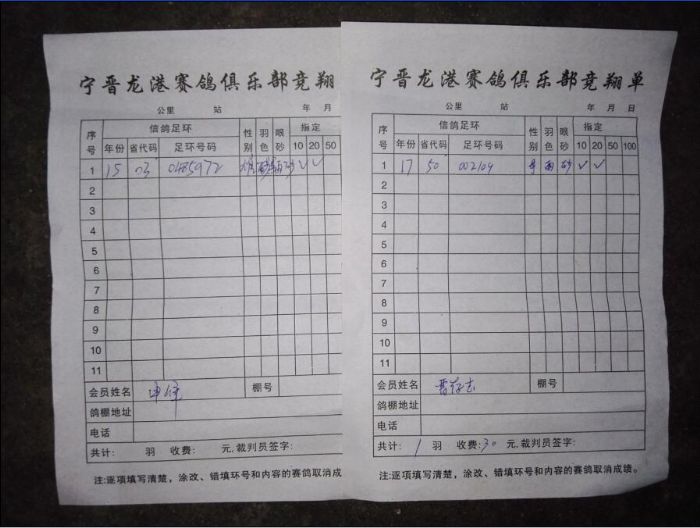 宁晋龙港赛鸽俱乐部竞翔
公里 站 年 月
序号 信鸽足环 性别 羽色 眼砂 指定
年份 省代码 足环号码 10 20 50
1 15 03 0185972 雄 砂 ✓ ✓
2
3
4
5
6
7
8
9
10
11
会员姓名 棚号
鸽棚地址
电话
共计: 羽 收费: 元,裁判员签字:
注:逐项填写清楚，涂改、错填环号和内容的赛鸽取消成
宁晋龙港赛鸽俱乐部竞翔单
公里 站 年 月 日
序号 信鸽足环 性别 羽色 眼砂 指定
年份 省代码 足环号码 10 20 50 100
1 17 50 002109 雨 砂 ✓ ✓
2
3
4
5
6
7
8
9
10
11
会员姓名 棚号
鸽棚地址
电话
共计: 1 羽 收费: 30 元,裁判员签字:
注:逐项填写清楚，涂改、错填环号和内容的赛鸽取消成绩。